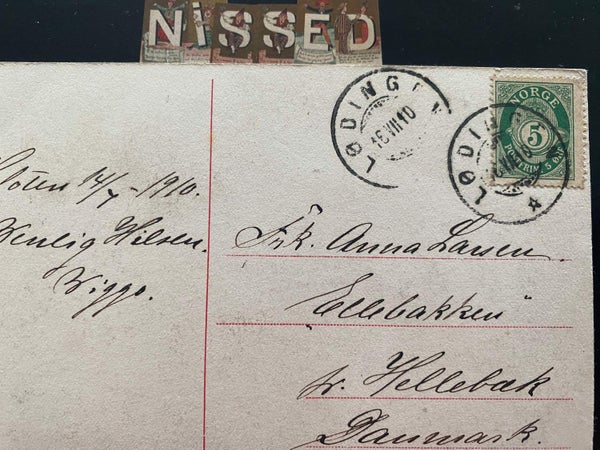 NiSSED
LØDINGEN
16 VII 10
NORGE
5
POSTFRIM. 5 ØRE
LØDINGEN
Støten 14/7 - 1910.
Venlig Hilsen.
Viggo.
Frk. Anna Larsen.
"Ellebakken"
pr. Hellebæk
Danmark.